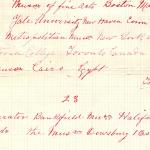 Museum of fine arts Boston Ma
Yale University, New Haven Conn
Metropolitan Museu New York
College Toronto Canada
Cairo, Egypt
23
Bankfield Mus Halifa
do the Mus Dewsbury